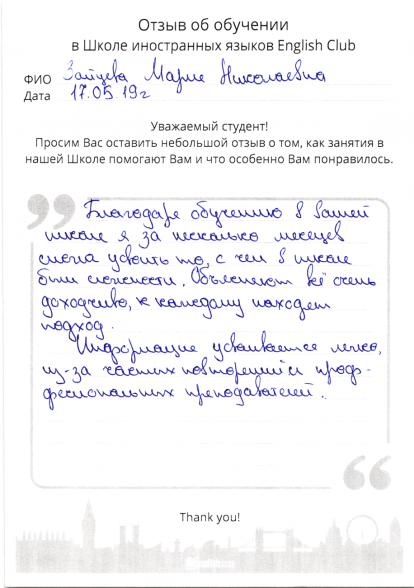 Отзыв об обучении
в Школе иностранных языков English Club
ФИО Зайцева Мария Николаевна
Дата 17.05.19г
Уважаемый студент!
Просим Вас оставить небольшой отзыв о том, как занятия в
нашей Школе помогают Вам и что особенно Вам понравилось.
Благодаря обучению в вашей
школе я за несколько месяцев
смогла усвоить то, с чем в школе
были сложности. Объясняют всё очень
доходчиво, к каждому находят
подход.
Информация усваивается легко,
из-за частых повторений и проф-
фесиональных преподавателей.
Thank you!